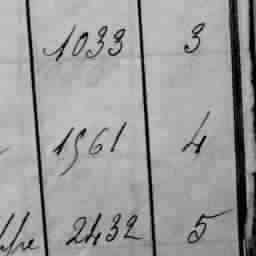 1033 3
1561 4
2432 5